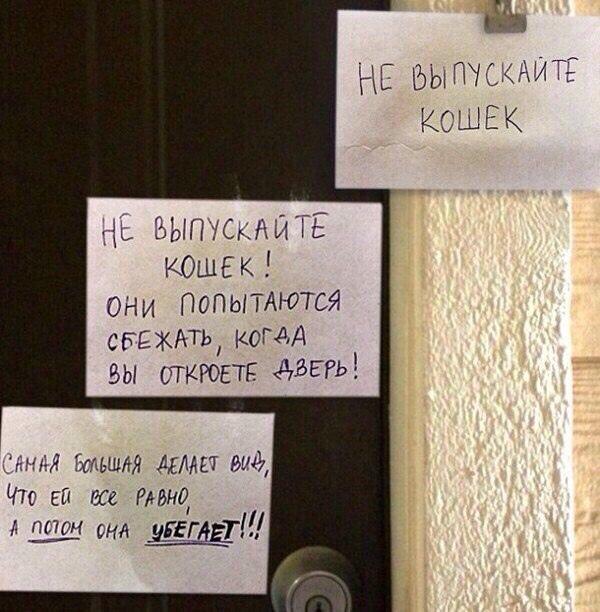 НЕ ВЫПУСКАЙТЕ
КОШЕК
НЕ ВЫПУСКАЙТЕ
КОШЕК!
ОНИ ПОПЫТАЮТСЯ
СБЕЖАТЬ, КОГДА
ВЫ ОТКРОЕТЕ ДВЕРЬ!
САМАЯ БОЛЬШАЯ ДЕЛАЕТ ВИД,
ЧТО ЕЙ ВСЕ РАВНО,
А ПОТОМ ОНА УБЕГАЕТ!!!